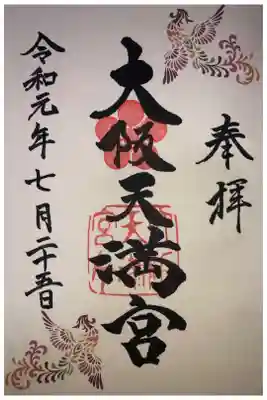 奉拝
大阪天満宮
令和元年七月二十五日